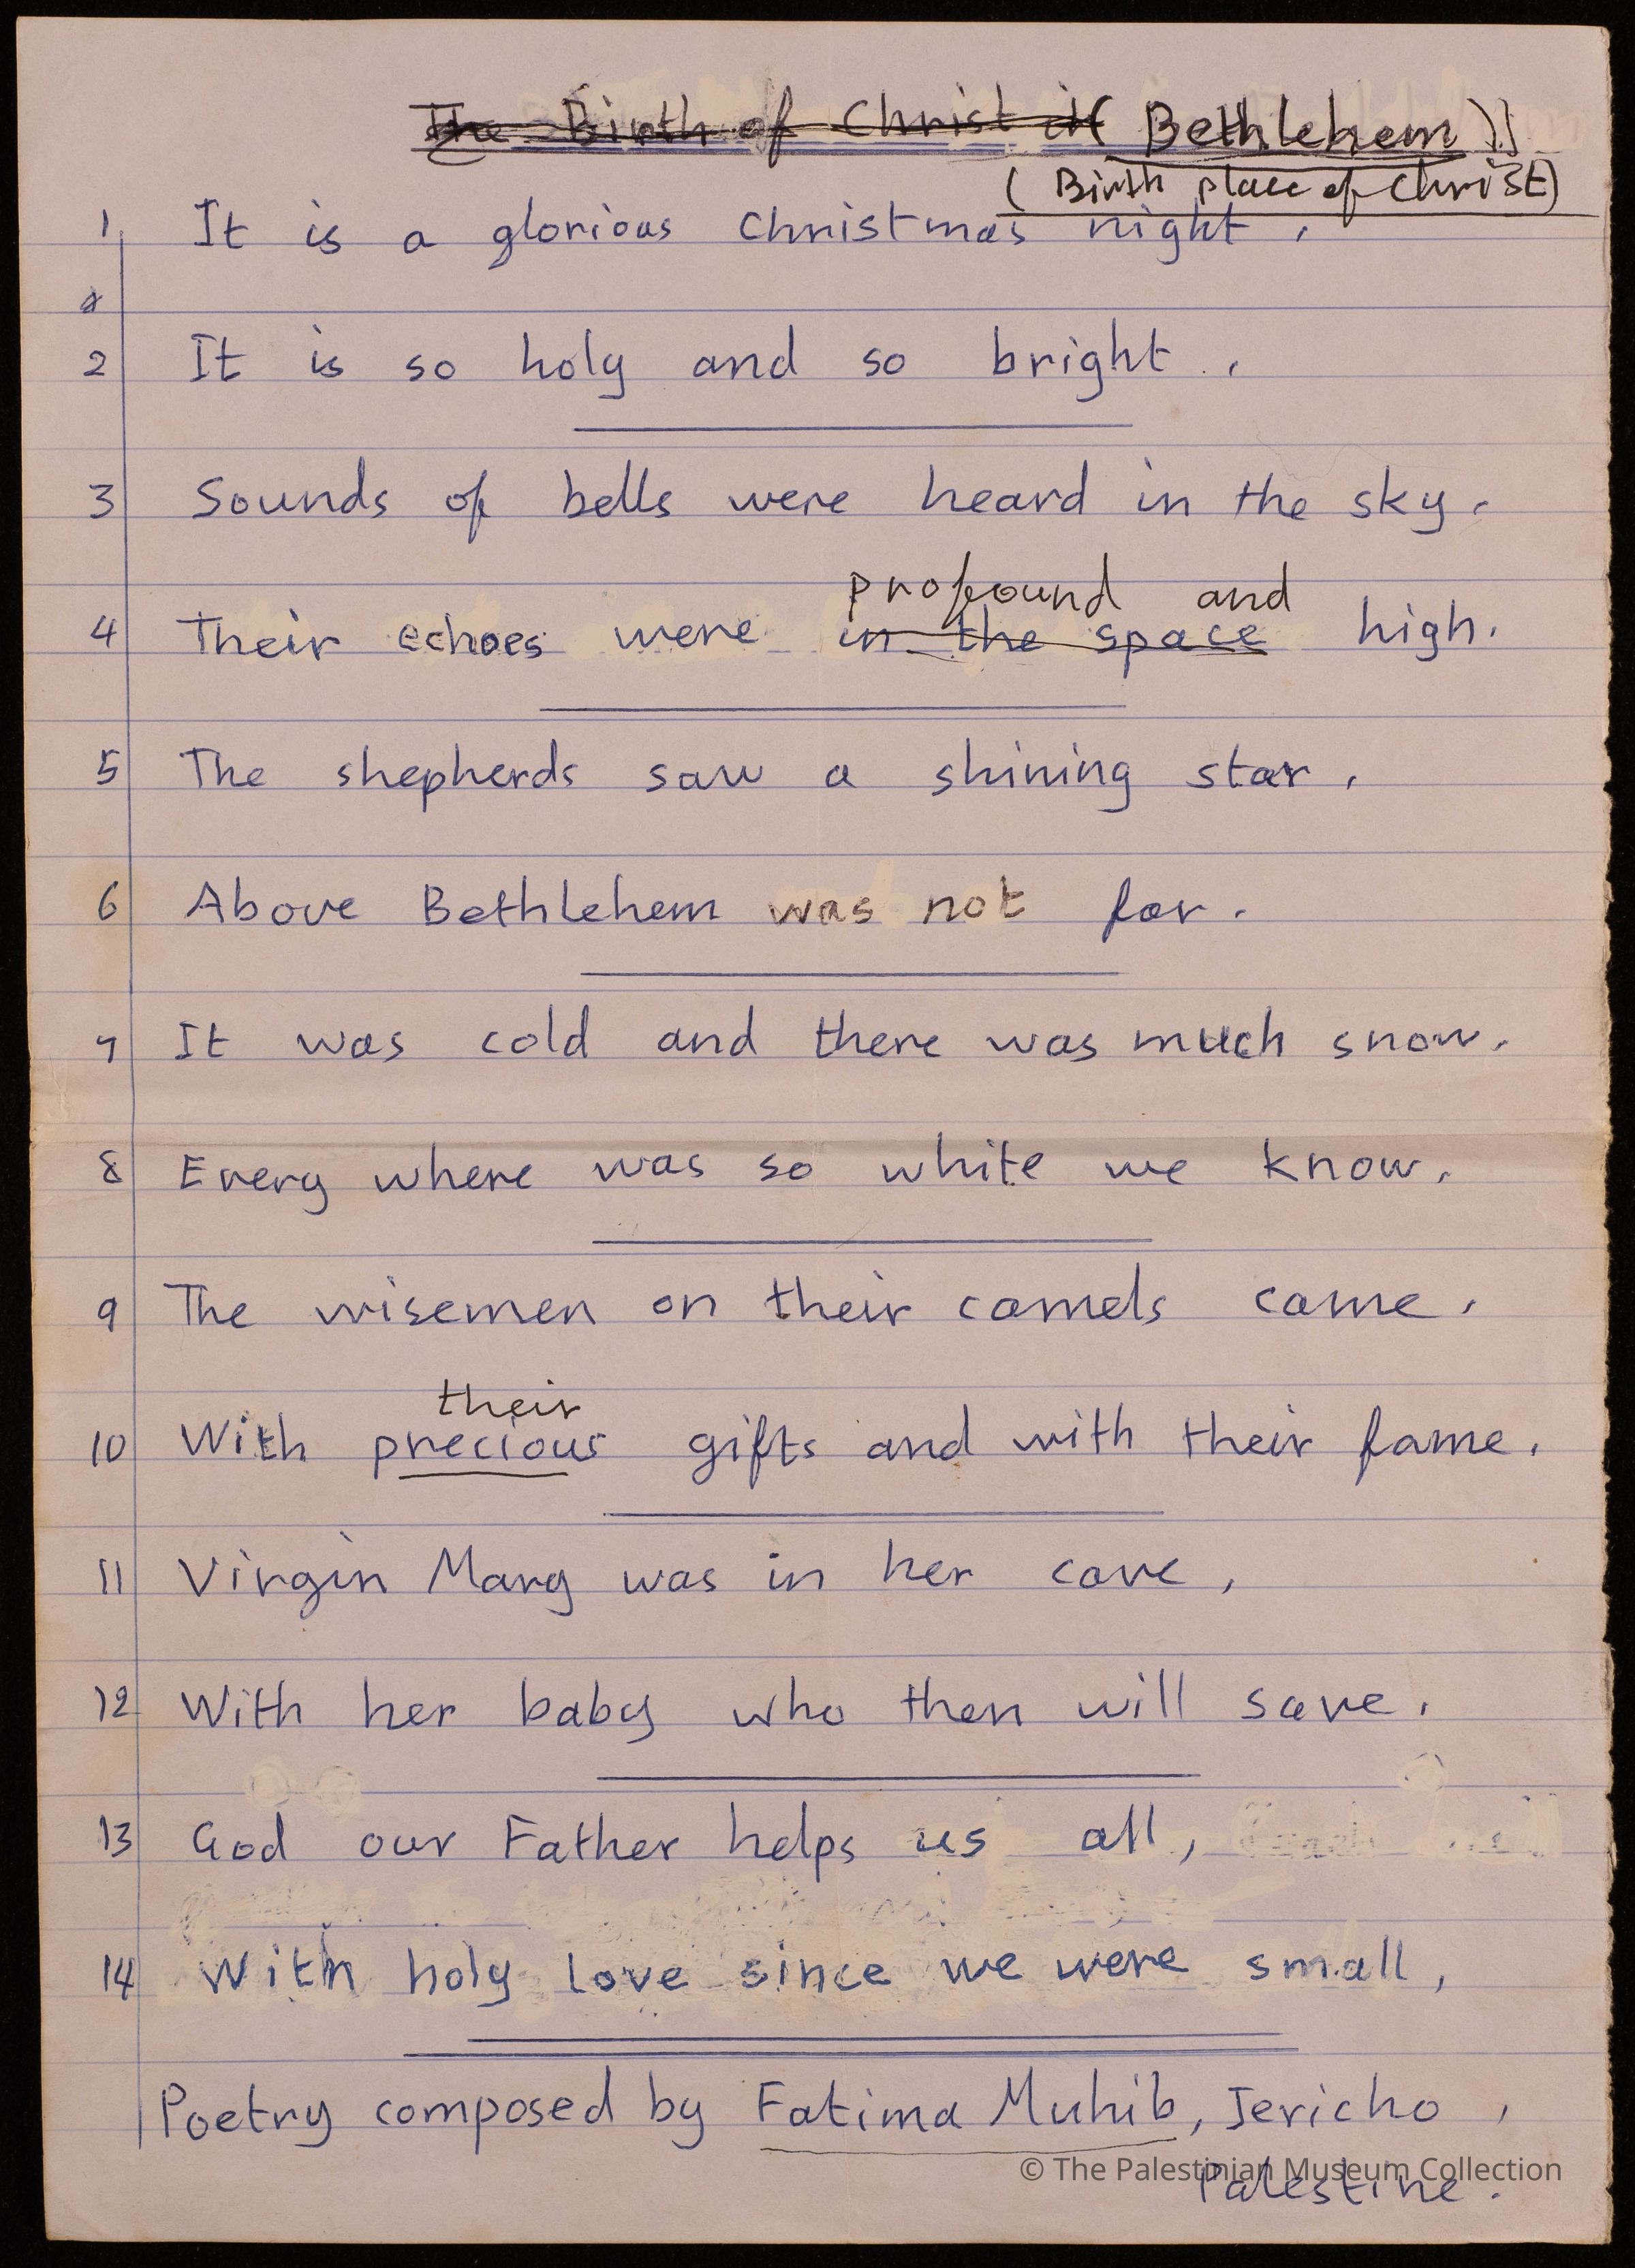 The Birth of Christ in ( Bethlehem ))
( Birth place of Christ)
1 It is a glorious Christmas night ,
2 It is so holy and so bright .
3 Sounds of bells were heard in the sky .
profound and
4 Their echoes were in the space high .
5 The shepherds saw a shining star ,
6 Above Bethlehem was not far .
7 It was cold and there was much snow .
8 Every where was so white we know .
9 The wisemen on their camels came ,
their
10 With precious gifts and with their fame .
11 Virgin Mary was in her cave ,
12 With her baby who then will save .
13 God our Father helps us all ,
14 With holy love since we were small ,
Poetry composed by Fatima Muhib, Jericho ,
Palestine .
© The Palestinian Museum Collection